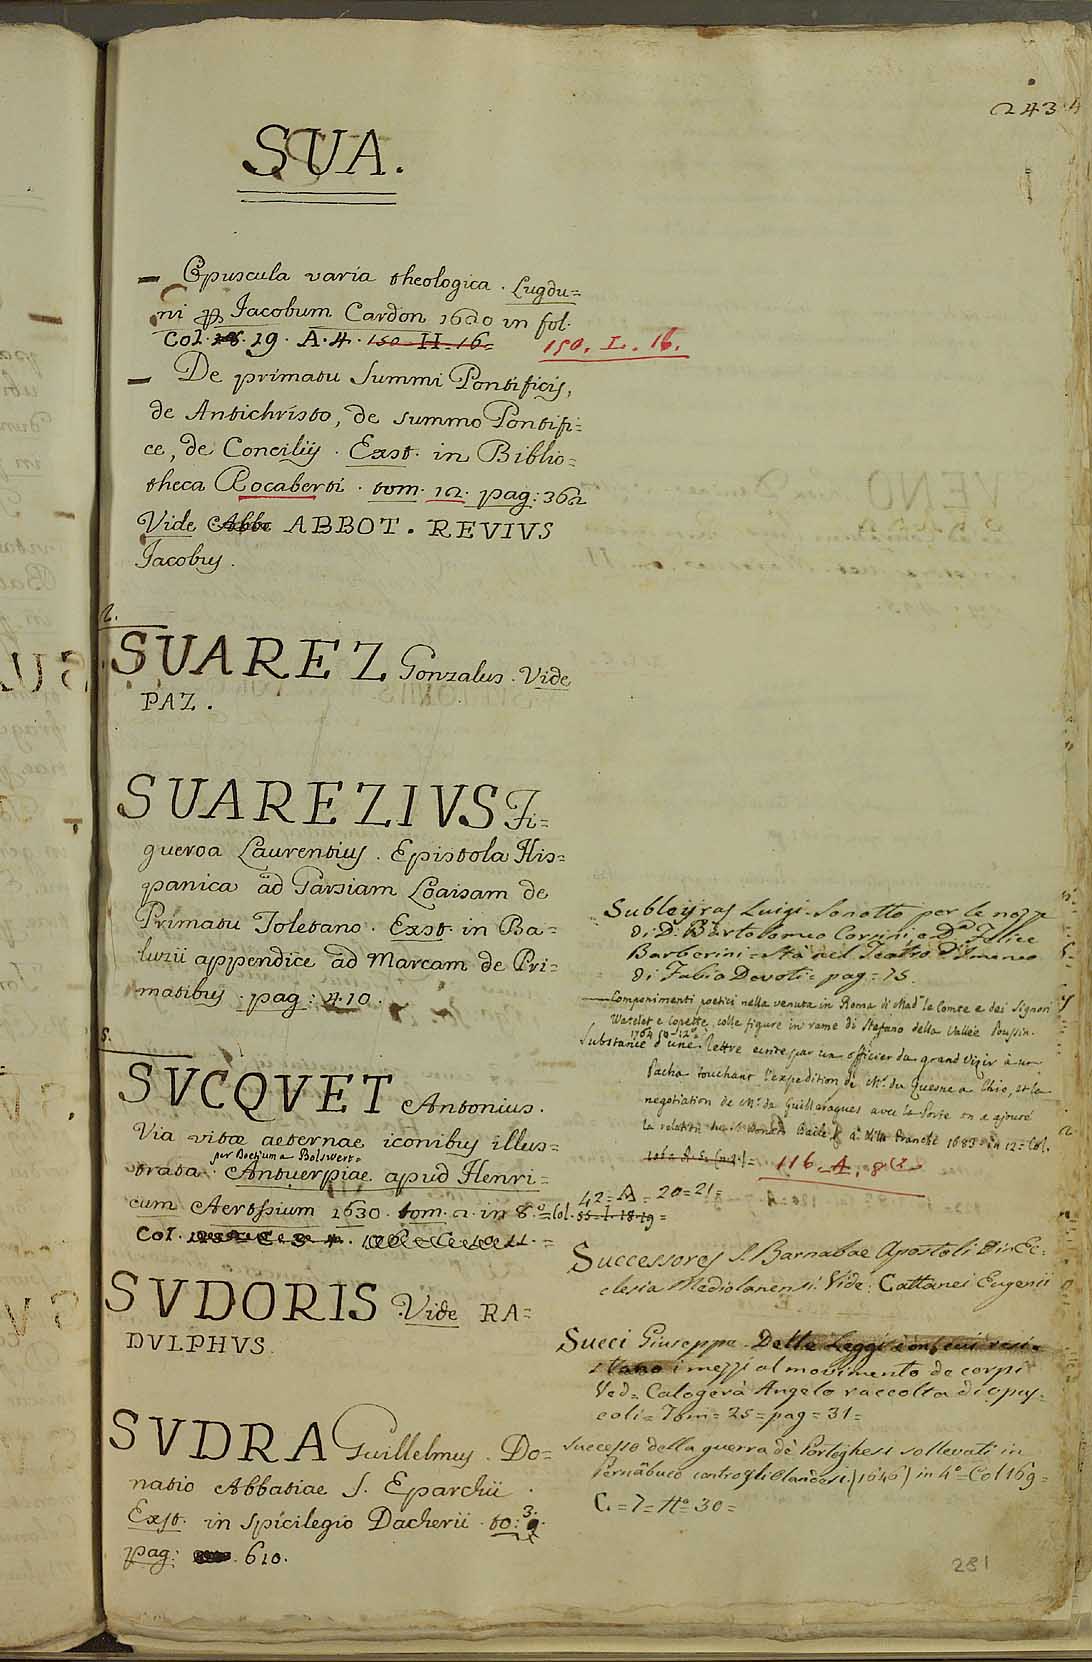 243
SUA.
— Opuscula varia theologica. Lugdu=
ni Jacobum Cardon 1620 in fol.
Col. 18. 19. A. 4. 150. H. 16. 150. L. 16.
— De primatu Summi Pontificis,
de Antichristo, de summo Pontifi=
ce, de Concilijs. Exst. in Biblio=
theca Rocaberti. tom. 12. pag: 362
Vide Abbo ABBOT. REVIVS
Jacobus.
2.
SUAREZ Gonzalus. Vide
PAZ.
SUAREZIVS Fi=
gueroa Laurentius. Epistola His=
panica ad Garsiam Loaisam de
Primatu Toletano. Exst. in Ba=
luzii appendice ad Marcam de Pri=
matibus. pag: 410.
S.
SVCQVET Antonius.
Via vitæ aeternae iconibus illus=
per Boetium a Bolswert=
trata. Antuerpiae apud Henri=
cum Aertssium 1630. tom. 2. in 8.º = Col. 55. I. 18. 19 =
42 = A = 20 = 21 =
Col.
SVDORIS. Vide RA=
DVLPHVS.
SVDRA Guillelmus. Do=
natio Abbatiae S. Eparchii.
Exst. in Spicilegio Dacherii. to: 3.
pag: 610.
Subleyras Luigi. Sonetto per le nozze
di D. Bartolomeo Corsini e Dª Felice
Barberini. Sta nel Teatro d'Imeneo
di Fabio Devoti = pag = 75.
— Componimenti poetici nella venuta in Roma di Madª le Comte e dei Signori
Watelet e Copette colle figure in rame di Stefano della Vallée Poussin.
1764 in 12º
Substance d'une lettre ecrite par un officier du grand Vizir à un
Pacha touchant l'expedition de Mr. du Quesne a Chio, et la
negotiation de Mr. de Guilleragues avec la Porte on a ajouté
la relation du Donato Baile à Ville Franche 1683 = in 12 = Col.
116. A. 8
Successores S. Barnabae Apostoli in Ec=
clesia Mediolanensi. Vide: Cattanei Eugenii
Succi Giuseppe. Delle Leggi con cui resi=
stano i mezzi al movimento de corpi
Ved = Calogerà Angelo raccolta di opus=
coli = Tom = 25 = pag = 31 =
Successo della guerra de Porteghesi sollevati in
Pernãbuco contro gli Olandesi. (1646) in 4º = Col 169 =
C. = 7 = Nº 30 =
281